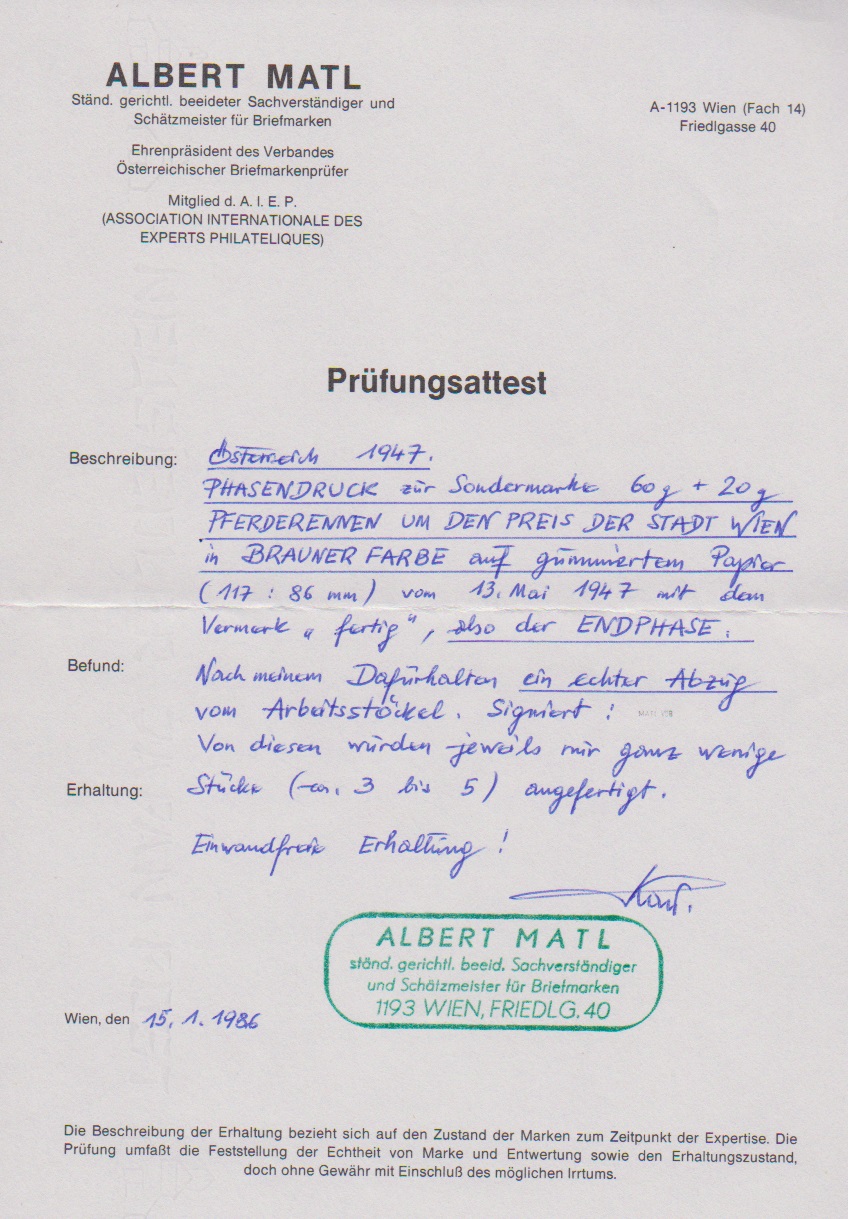 ALBERT MATL
Ständ. gerichtl. beeideter Sachverständiger und
Schätzmeister für Briefmarken
Ehrenpräsident des Verbandes
Österreichischer Briefmarkenprüfer
Mitglied d. A. I. E. P.
(ASSOCIATION INTERNATIONALE DES
EXPERTS PHILATELIQUES)
A-1193 Wien (Fach 14)
Friedlgasse 40
Prüfungsattest
Beschreibung: Österreich 1947.
PHASENDRUCK zur Sondermarke 60g + 20g
PFERDERENNEN UM DEN PREIS DER STADT WIEN
in BRAUNER FARBE auf gummiertem Papier
(117 : 86 mm) vom 13. Mai 1947 mit dem
Vermerk „fertig", also der ENDPHASE.
Befund: Nach meinem Dafürhalten ein echter Abzug
vom Arbeitsstöckel. Signiert!
Von diesen wurden jeweils nur ganz wenige
Erhaltung: Stücke (ca. 3 bis 5) angefertigt.
Einwandfreie Erhaltung!
ALBERT MATL
ständ. gerichtl. beeid. Sachverständiger
und Schätzmeister für Briefmarken
1193 WIEN, FRIEDLG. 40
Wien, den 15. 1. 1986
Die Beschreibung der Erhaltung bezieht sich auf den Zustand der Marken zum Zeitpunkt der Expertise. Die
Prüfung umfaßt die Feststellung der Echtheit von Marke und Entwertung sowie den Erhaltungszustand,
doch ohne Gewähr mit Einschluß des möglichen Irrtums.